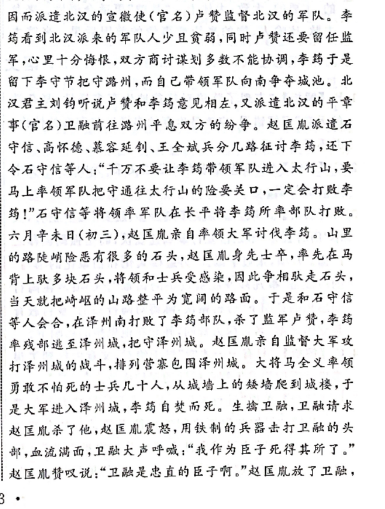 因而派遣北汉的宣徽使(官名)卢赞监督北汉的军队。李
筠看到北汉派来的军队人少且贫弱,同时卢赞还要留任监
军,心里十分悔恨,双方商讨谋划多数不能协调,李筠于是
留下李守节把守潞州,而自己带领军队向南争夺城池。北
汉君主刘钧听说卢赞和李筠意见相左,又派遣北汉的平章
事(官名)卫融前往潞州平息双方的纷争。赵匡胤派遣石
守信、高怀德、慕容延钊、王全斌兵分几路征讨李筠,还下
令石守信等人:“千万不要让李筠带领军队进入太行山,要
马上率领军队把守通往太行山的险要关口,一定会打败李
筠!”石守信等将领率军队在长平将李筠所率部队打败。
六月辛未日(初三),赵匡胤亲自率领大军讨伐李筠。山里
的路陡峭险恶有很多的石头,赵匡胤身先士卒,率先在马
背上驮多块石头,将领和士兵受感染,因此争相驮走石头,
当天就把崎岖的山路整平为宽阔的路面。于是和石守信
等人会合,在泽州南打败了李筠部队,杀了监军卢赞,李筠
率残部逃至泽州城,把守泽州城。赵匡胤亲自监督大军攻
打泽州城的战斗,排列营寨包围泽州城。大将马全义率领
勇敢不怕死的士兵几十人,从城墙上的矮墙爬到城楼,于
是大军进入泽州城,李筠自焚而死。生擒卫融,卫融请求
赵匡胤杀了他,赵匡胤震怒,用铁制的兵器击打卫融的头
部,血流满面,卫融大声呼喊:“我作为臣子死得其所了。”
赵匡胤赞叹说:“卫融是忠直的臣子啊。”赵匡胤放了卫融,
3 ·